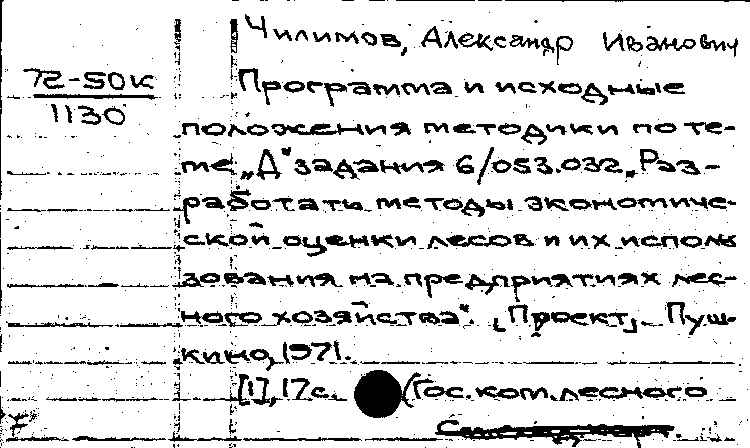 Чилимов, Александр Иванович
72-50к
1130
Программа и исходные
положения методики по те-
ме „Д“ задания 6/053.032 „Раз-
работать методы экономиче-
ской оценки лесов и их исполь
зования на предприятиях лес-
ного хозяйства“. [Проект]. Пуш-
кино, 1971.
[1], 17с. (Гос. ком. лесного